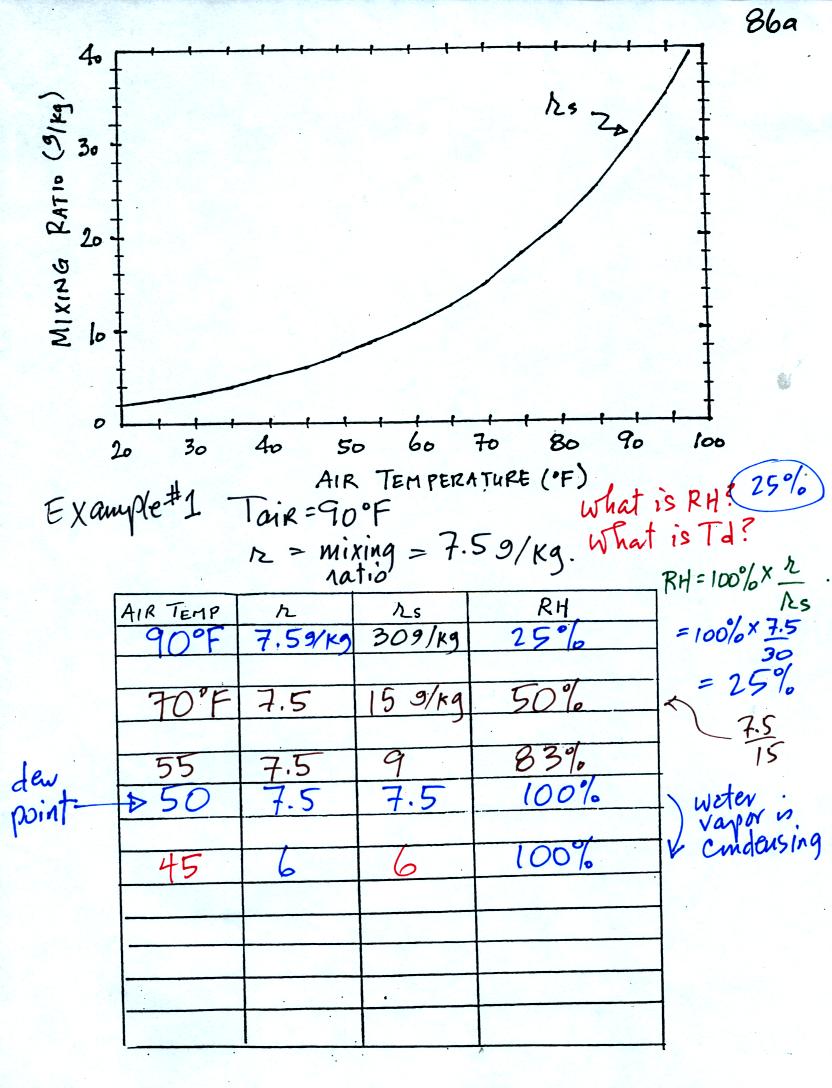 86a
40
30
20
10
0
MIXING RATIO (g/kg)
rs
20 30 40 50 60 70 80 90 100
AIR TEMPERATURE (°F)
Example #1 TAIR = 90°F
r = mixing ratio = 7.5 g/kg.
What is RH? 25%
What is Td?
RH = 100% × r/rs
= 100% × 7.5/30
= 25%
AIR TEMP r rs RH
90°F 7.5 g/kg 30 g/kg 25%
70°F 7.5 15 g/kg 50%
7.5/15
55 7.5 9 83%
dew point
50 7.5 7.5 100%
water
vapor is
condensing
45 6 6 100%